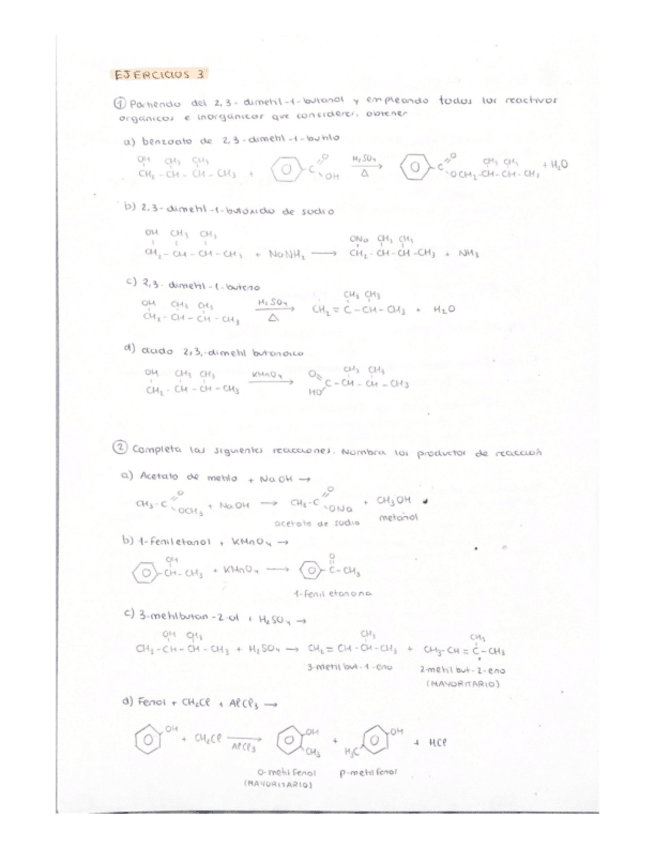 EJERCICIOS 3
① Partiendo del 2,3-dimetil-1-butanol y empleando todos los reactivos
orgánicos e inorgánicos que consideres, obtener
a) benzoato de 2,3-dimetil-1-butilo
OH CH3 CH3
CH2-CH-CH-CH3 + C O OH H2SO4 Δ C O OCH2-CH-CH-CH3 CH3 CH3 + H2O
b) 2,3-dimetil-1-butóxido de sodio
OH CH3 CH3 ONa CH3 CH3
CH2-CH-CH-CH3 + NaNH2 → CH2-CH-CH-CH3 + NH3
c) 2,3-dimetil-1-buteno
OH CH3 CH3 H2SO4 CH3 CH3
CH2-CH-CH-CH3 Δ CH2=C-CH-CH3 + H2O
d) ácido 2,3,-dimetil butanoico
OH CH3 CH3 KMnO4 O CH3 CH3
CH2-CH-CH-CH3 → HO C-CH-CH-CH3
② Completa las siguientes reacciones. Nombra los productos de reacción
a) Acetato de metilo + NaOH →
CH3-C O OCH3 + NaOH → CH3-C O ONa + CH3OH
acetato de sodio metanol
b) 1-Feniletanol + KMnO4 →
OH O
CH-CH3 + KMnO4 → C-CH3
1-fenil etanona
c) 3-metilbutan-2-ol + H2SO4 →
OH CH3 CH3 CH3
CH3-CH-CH-CH3 + H2SO4 → CH2=CH-CH-CH3 + CH3-CH=C-CH3
3-metil but-1-eno 2-metil but-2-eno
(MAYORITARIO)
d) Fenol + CH3Cl + AlCl3 →
OH + CH3Cl AlCl3 OH CH3 + H3C OH + HCl
o-metil fenol p-metil fenol
(MAYORITARIO)